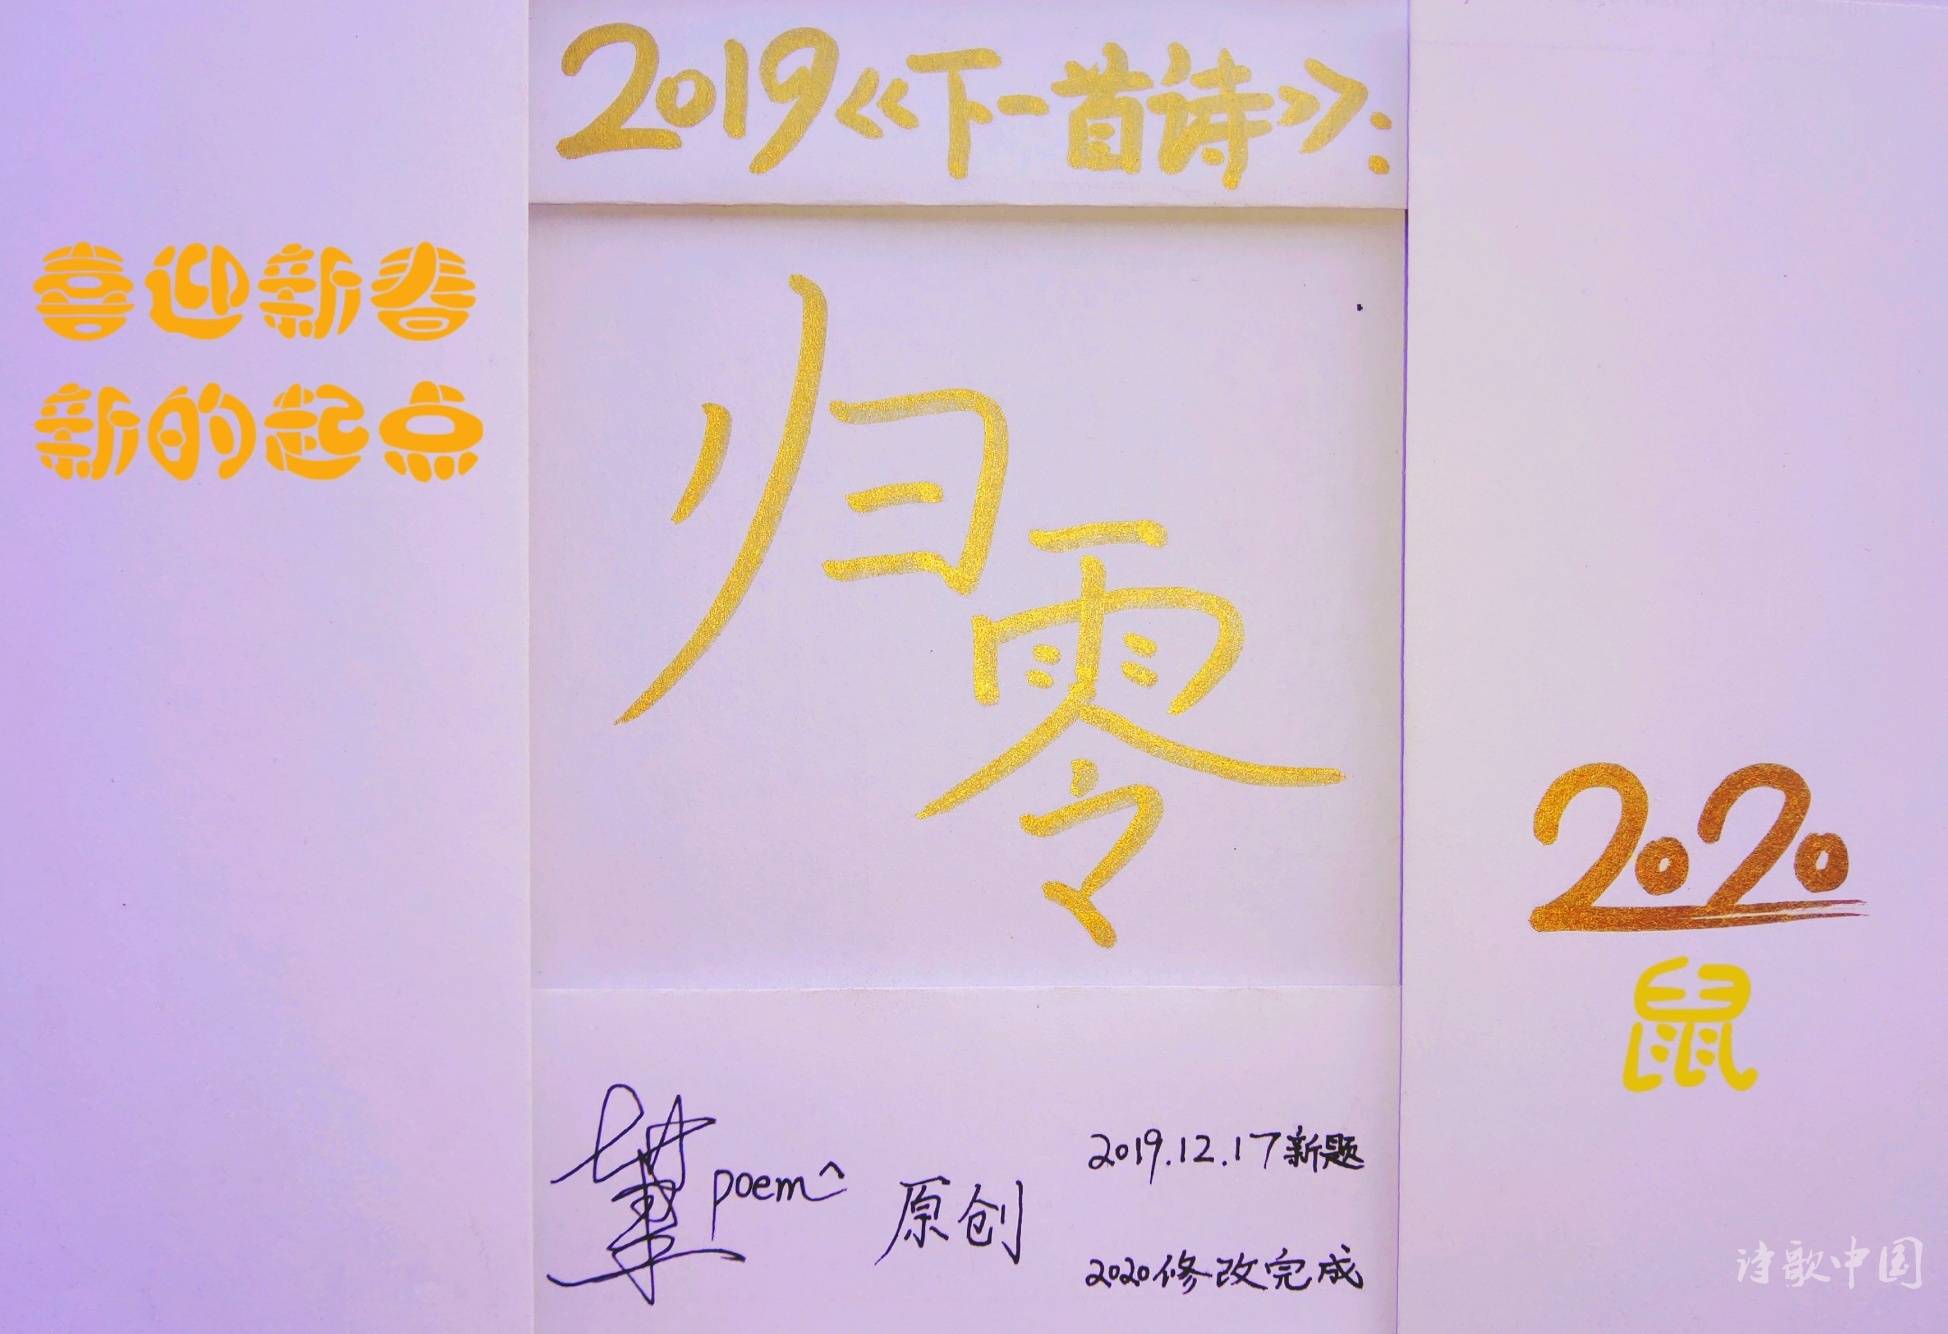 2019《下一首诗》：
喜迎新春
新的起点
归零
2020
鼠
poem^
原创
2019.12.17新题
2020修改完成
诗歌中国